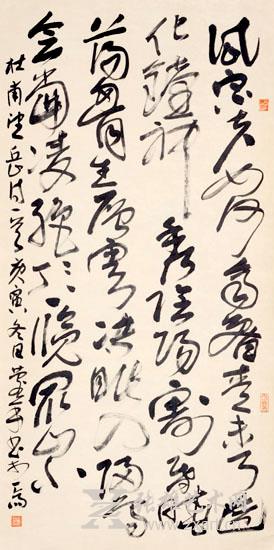 岱宗夫如何齊魯青未了造
化鍾神秀陰陽割昏曉
蕩胸生層雲決眥入歸鳥
會當凌絕頂一覽眾山小
杜甫望岳詩一首庚寅冬日